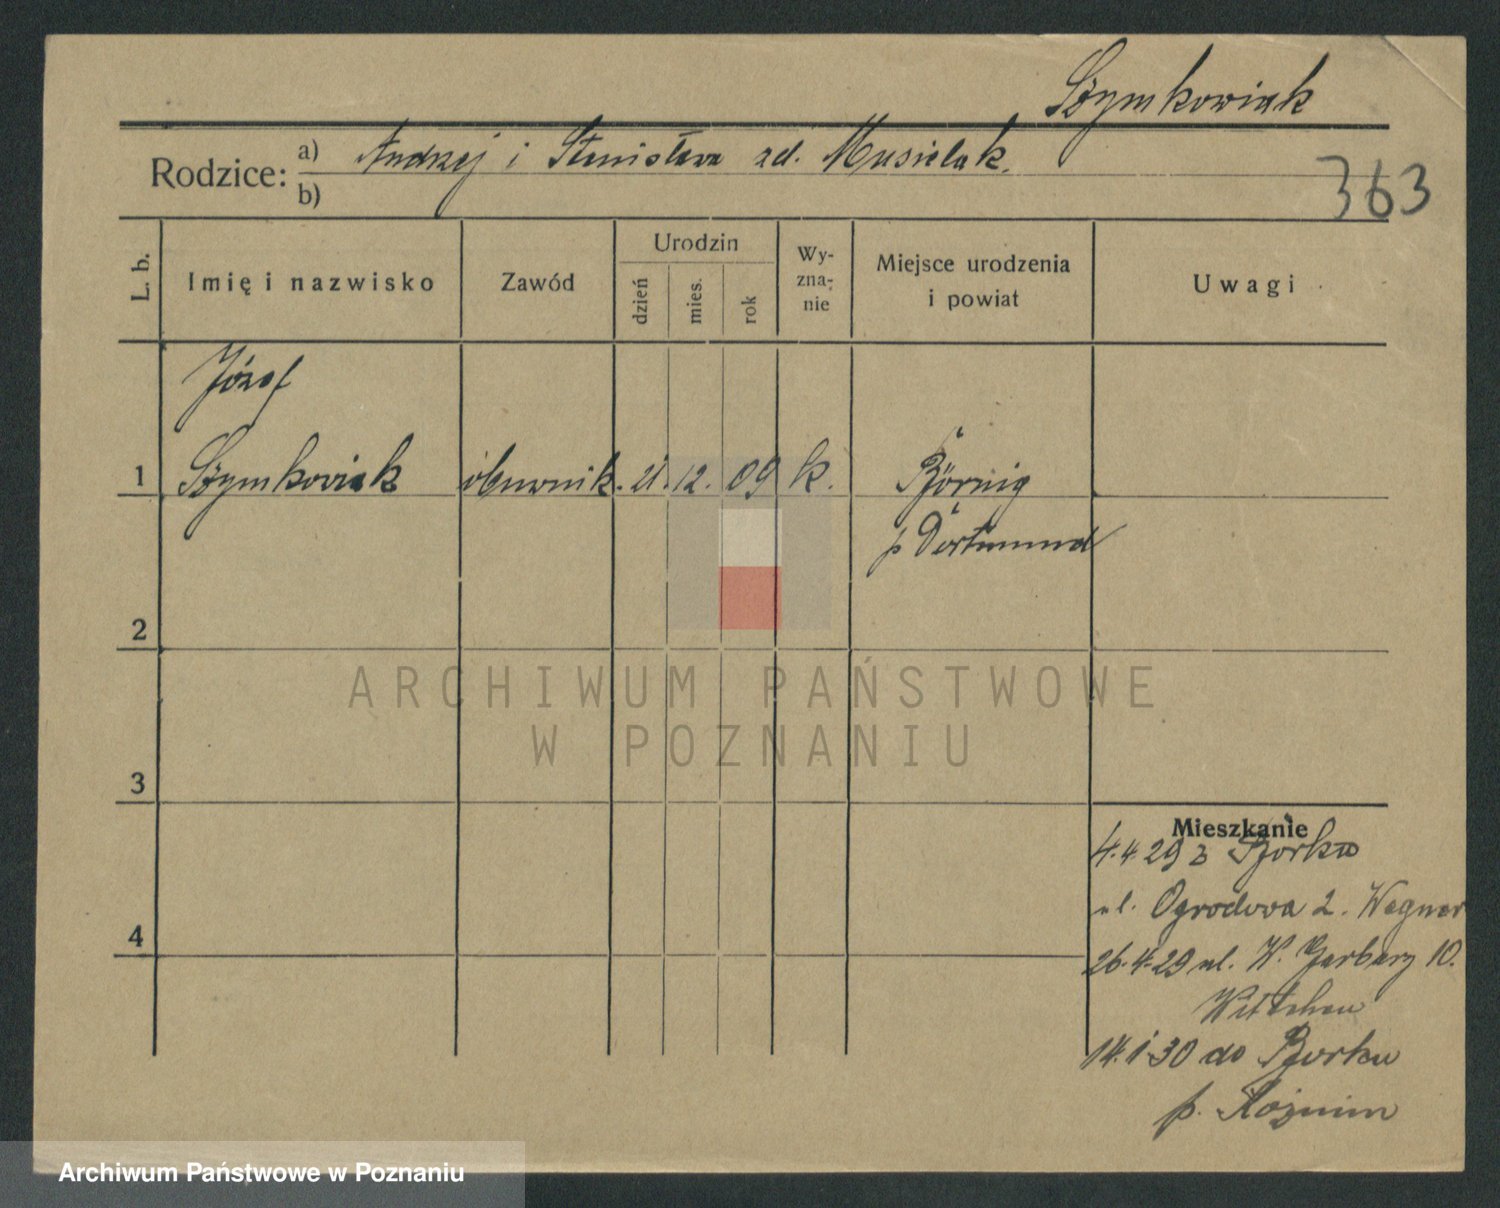 Szymkowiak
Rodzice: a) Andrzej i Stanisława zd. Musielak.
b)
363
L. b.
Imię i nazwisko
Zawód
Urodzin
dzień
mies.
rok
Wy-
zna-
nie
Miejsce urodzenia
i powiat
Uwagi
Józef
1 Szymkowiak obuwnik. 21. 12. 09 k. Börnig
p Dortmund
2
3
4
ARCHIWUM PAŃSTWOWE
W POZNANIU
Mieszkanie
4.4.29 z Borku
ul. Ogrodowa 2. Wegner
26.4.29 ul. W. Garbary 10.
14.1.30 do Borku
p. Koźmin
Archiwum Państwowe w Poznaniu